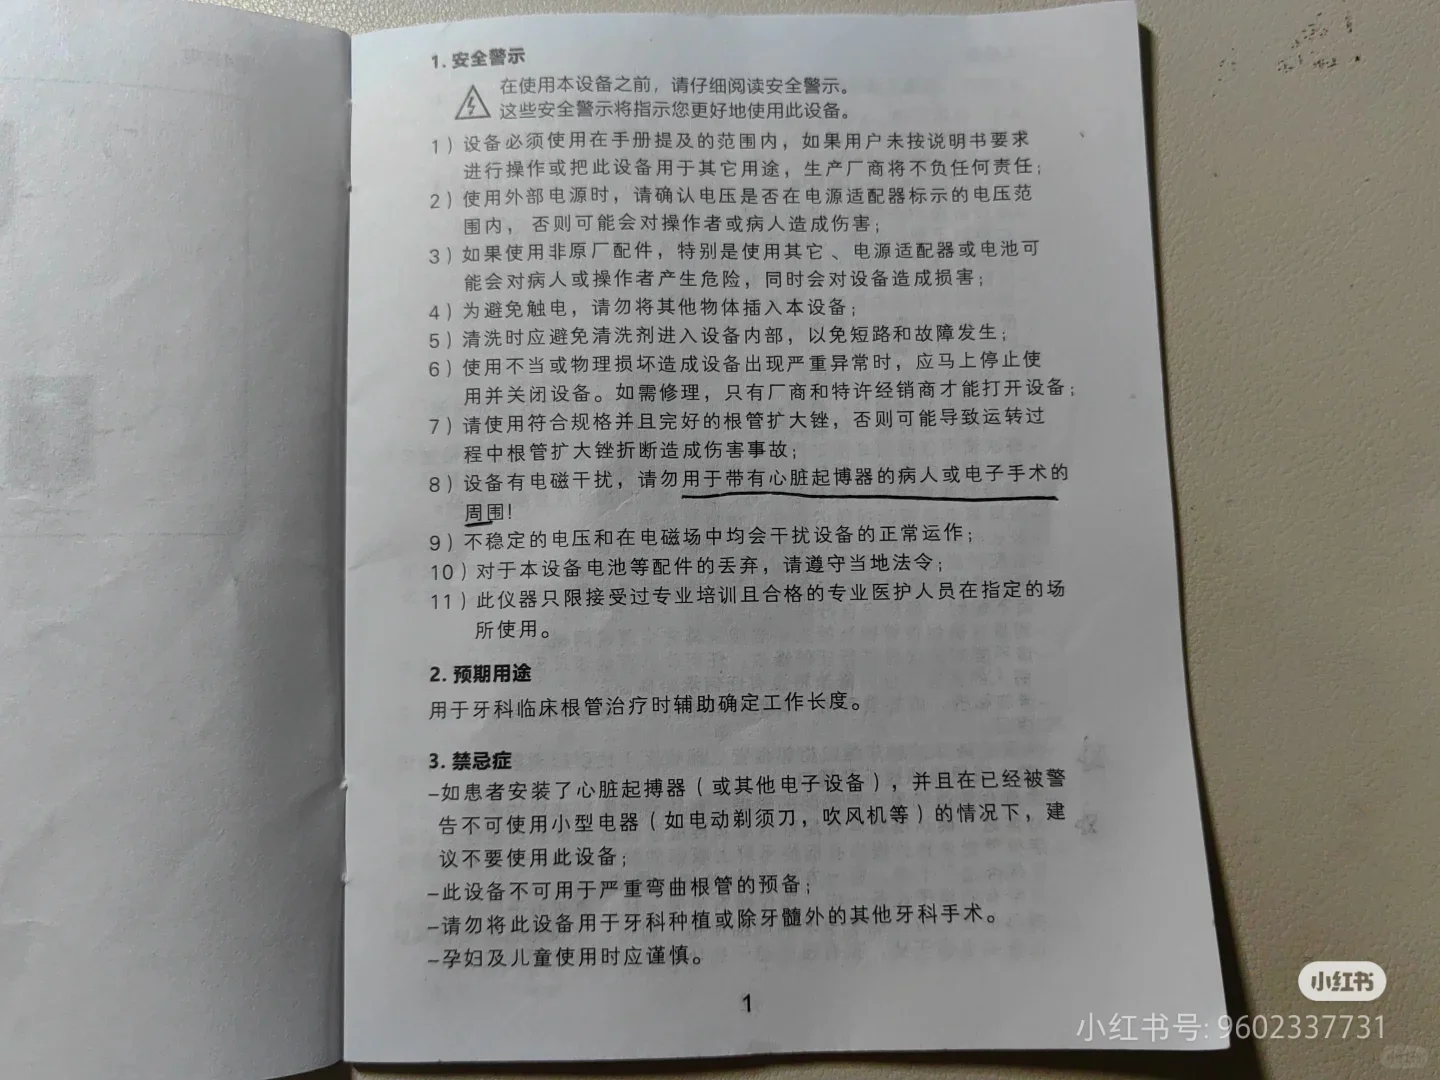 1. 安全警示
在使用本设备之前，请仔细阅读安全警示。
这些安全警示将指示您更好地使用此设备。
1）设备必须使用在手册提及的范围内，如果用户未按说明书要求
进行操作或把此设备用于其它用途，生产厂商将不负任何责任；
2）使用外部电源时，请确认电压是否在电源适配器标示的电压范
围内，否则可能会对操作者或病人造成伤害；
3）如果使用非原厂配件，特别是使用其它、电源适配器或电池可
能会对病人或操作者产生危险，同时会对设备造成损害；
4）为避免触电，请勿将其他物体插入本设备；
5）清洗时应避免清洗剂进入设备内部，以免短路和故障发生；
6）使用不当或物理损坏造成设备出现严重异常时，应马上停止使
用并关闭设备。如需修理，只有厂商和特许经销商才能打开设备；
7）请使用符合规格并且完好的根管扩大锉，否则可能导致运转过
程中根管扩大锉折断造成伤害事故；
8）设备有电磁干扰，请勿用于带有心脏起博器的病人或电子手术的
周围！
9）不稳定的电压和在电磁场中均会干扰设备的正常运作；
10）对于本设备电池等配件的丢弃，请遵守当地法令；
11）此仪器只限接受过专业培训且合格的专业医护人员在指定的场
所使用。
2. 预期用途
用于牙科临床根管治疗时辅助确定工作长度。
3. 禁忌症
–如患者安装了心脏起搏器（或其他电子设备），并且在已经被警
告不可使用小型电器（如电动剃须刀，吹风机等）的情况下，建
议不要使用此设备；
–此设备不可用于严重弯曲根管的预备；
–请勿将此设备用于牙科种植或除牙髓外的其他牙科手术。
–孕妇及儿童使用时应谨慎。
1
小红书
小红书号: 9602337731